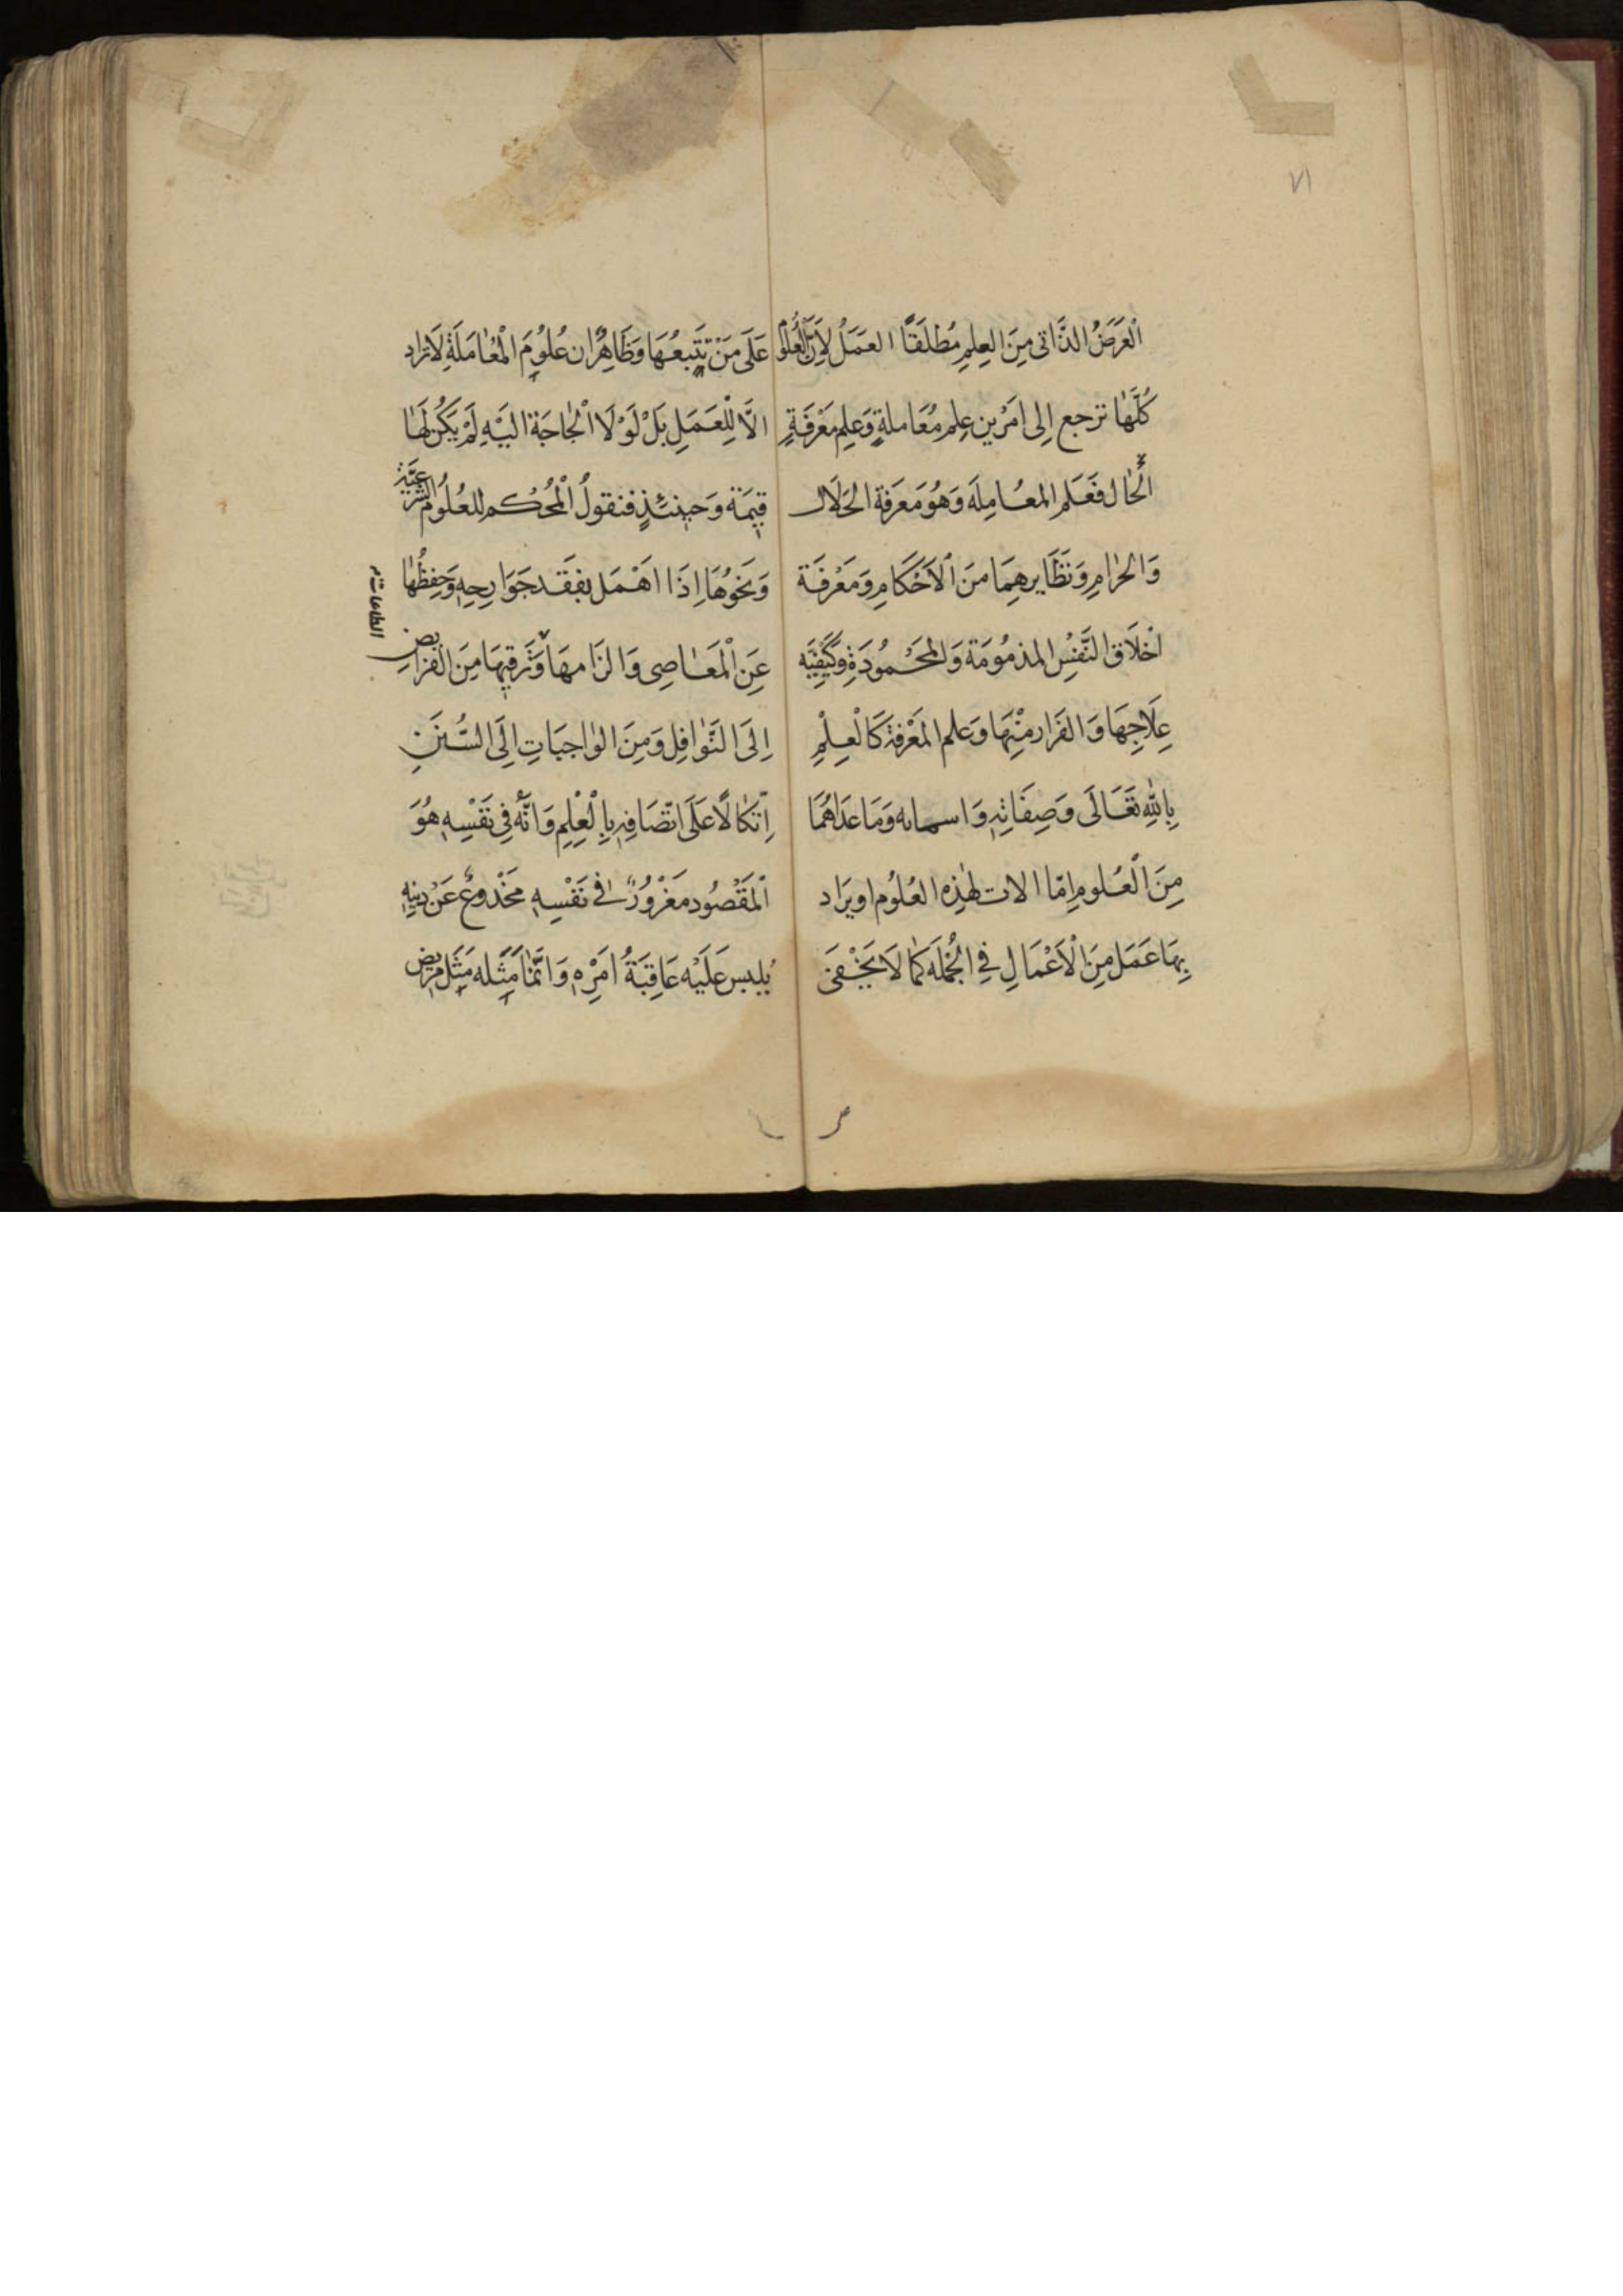 ٧١
اْلغَرَضُ الذَّاتى مِنَ العِلمِ مُطْلَقًا العَمَلُ لِاَنَّ العُلُومَ
كُلَّهٰا ترجع اِلى اَمْرَين عِلمِ مُعَاملةٍ وَعَلِم مَعْرِفَةٍ
اْلحٰال فَعَلم المعُامِلَه وَهُوَ مَعرَفة الحَلَال
وَالحرٰامِ وَنَظَايرهِمَا منَ اْلاَحْكَامِ وَمَعْرفَة
اَخْلَاق النَّفسِْ المذمُومَة وَالمحْمُودَةِ وَكَيفِيَّه
عِلَاجِهَا وَالفَرَار منْهَا وَعلم المَعْرفة كَاْلعِلْمِ
بِاللّٰهِ تَعَالَى وَصِفَاتِهِ وَاسمائه وَمَا عَدَاهُمَا
مِنَ اْلعُلومِ اِمّا الات لهٰذِه العُلُوم اويَرَاد
بِهَا عَمَل مِنَ اْلاَعْمَالِ فِي الجُمْلَه كَمٰا لَا يَخْفىَ
عَلَى مَنْ تَتَبعُهَا وَظَاهِرٌ ان عُلُوُمَ اْلمُعٰامَلَةِ لَا تراد
الَّا لِلْعَمَلِ بَلْ لَوْلَا اْلحٰاجَة اليَْهِ لَمْ يَكُنْ لَهٰا
قِيمَة وَحيٖنئذٍ فنقولُ اْلمُحْكم للعُلُوم الشَّرعيَّة
وَنَحْوُهَا اِذَا اَهْمَل بفَقد جَوَارِحِهٖ وَحِفِظُهٰا
عَنِ اْلمَعٰاصِى وَالزَامهَا وَتَرَقيهَا مِنَ الفَرايضِ
الطاعات
اِلَى النَّوٰافِل وَمِنَ الوٰاجبَاتِ اِلَى السُّنَنِ
اِتّكٰالًا عَلَى اتّصَافِهٖ بِالْعِلِمِ وَانَّهُ فِى نَفْسِهٖ هُوَ
اْلمَقْصُود مَغْرُورٌ فى نَفْسِهٖ مَخْدُوعٌ عَنْ دِينِهٖ
يُلبس عَلَيْه عَاقِبَةُ امَرِْهٖ وَانَّمٰا مَثَله مَثَل مَريض